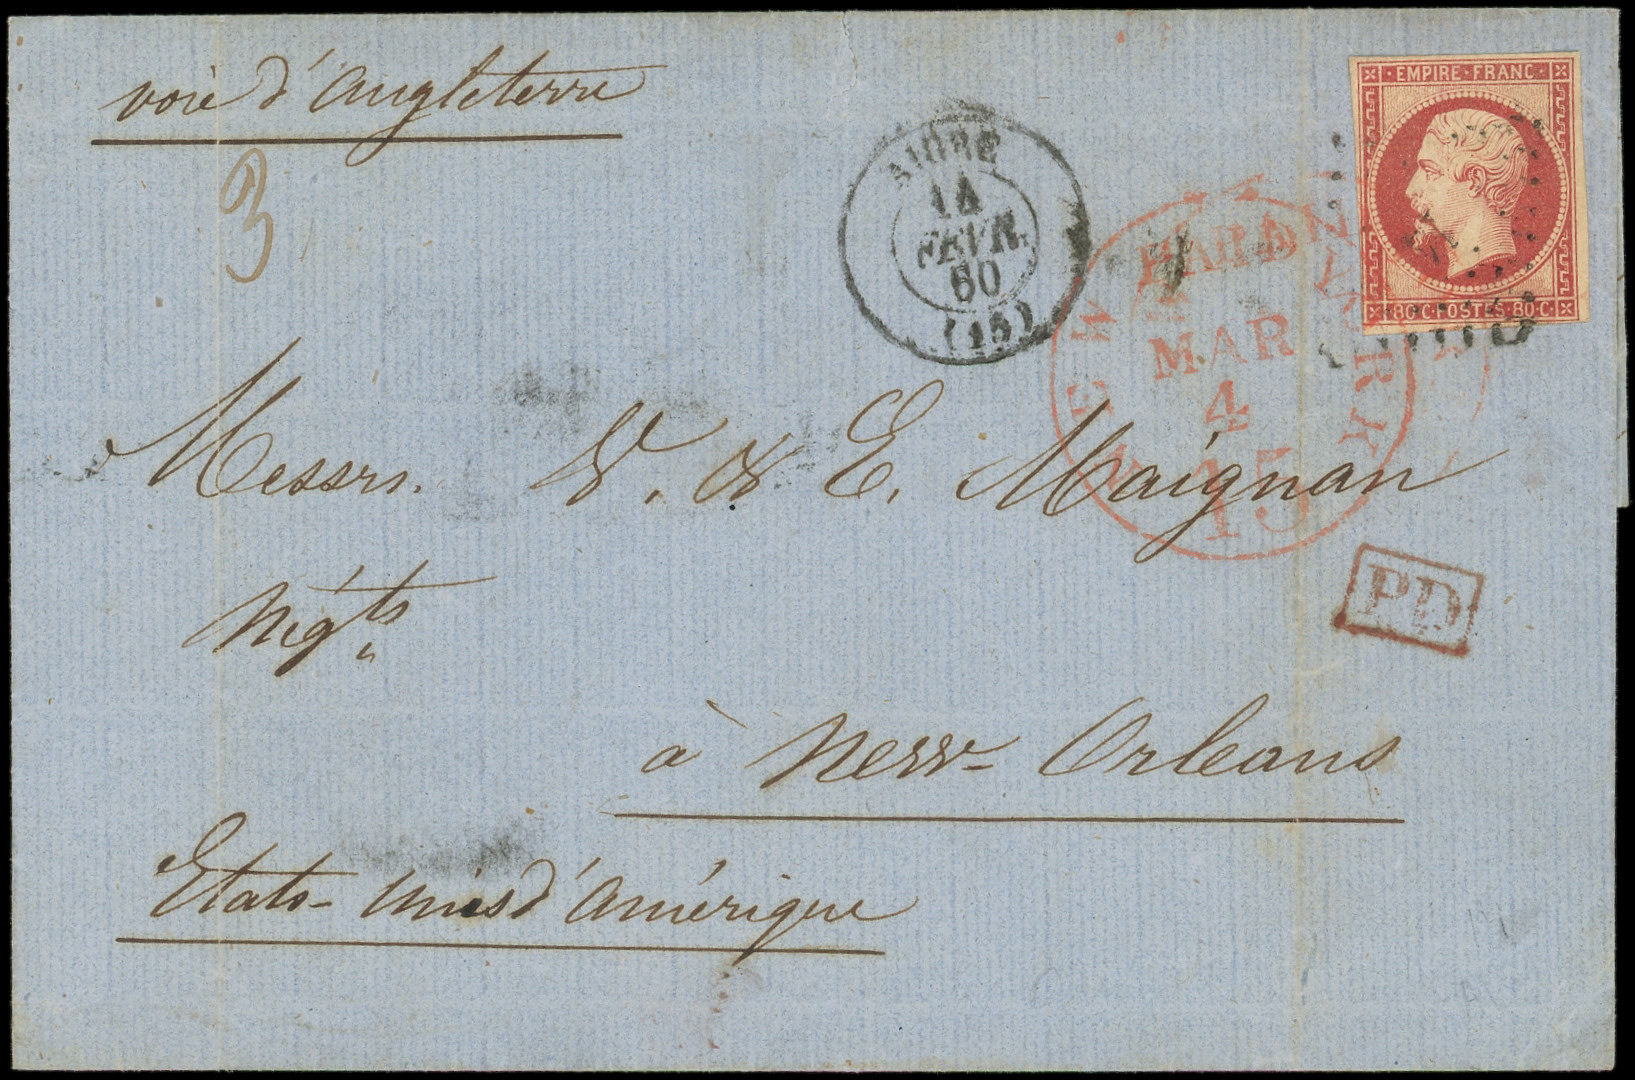 voie d'angleterre
3
AIGRE
14
FEVR.
60
(15)
EMPIRE·FRANC·
80·C·POSTES·80·C·
NEW YORK
PAID
MAR
4
15
PD
Messrs. V. & E. Maignan
Négts.
à New-Orleans
Etats-unis d'amérique